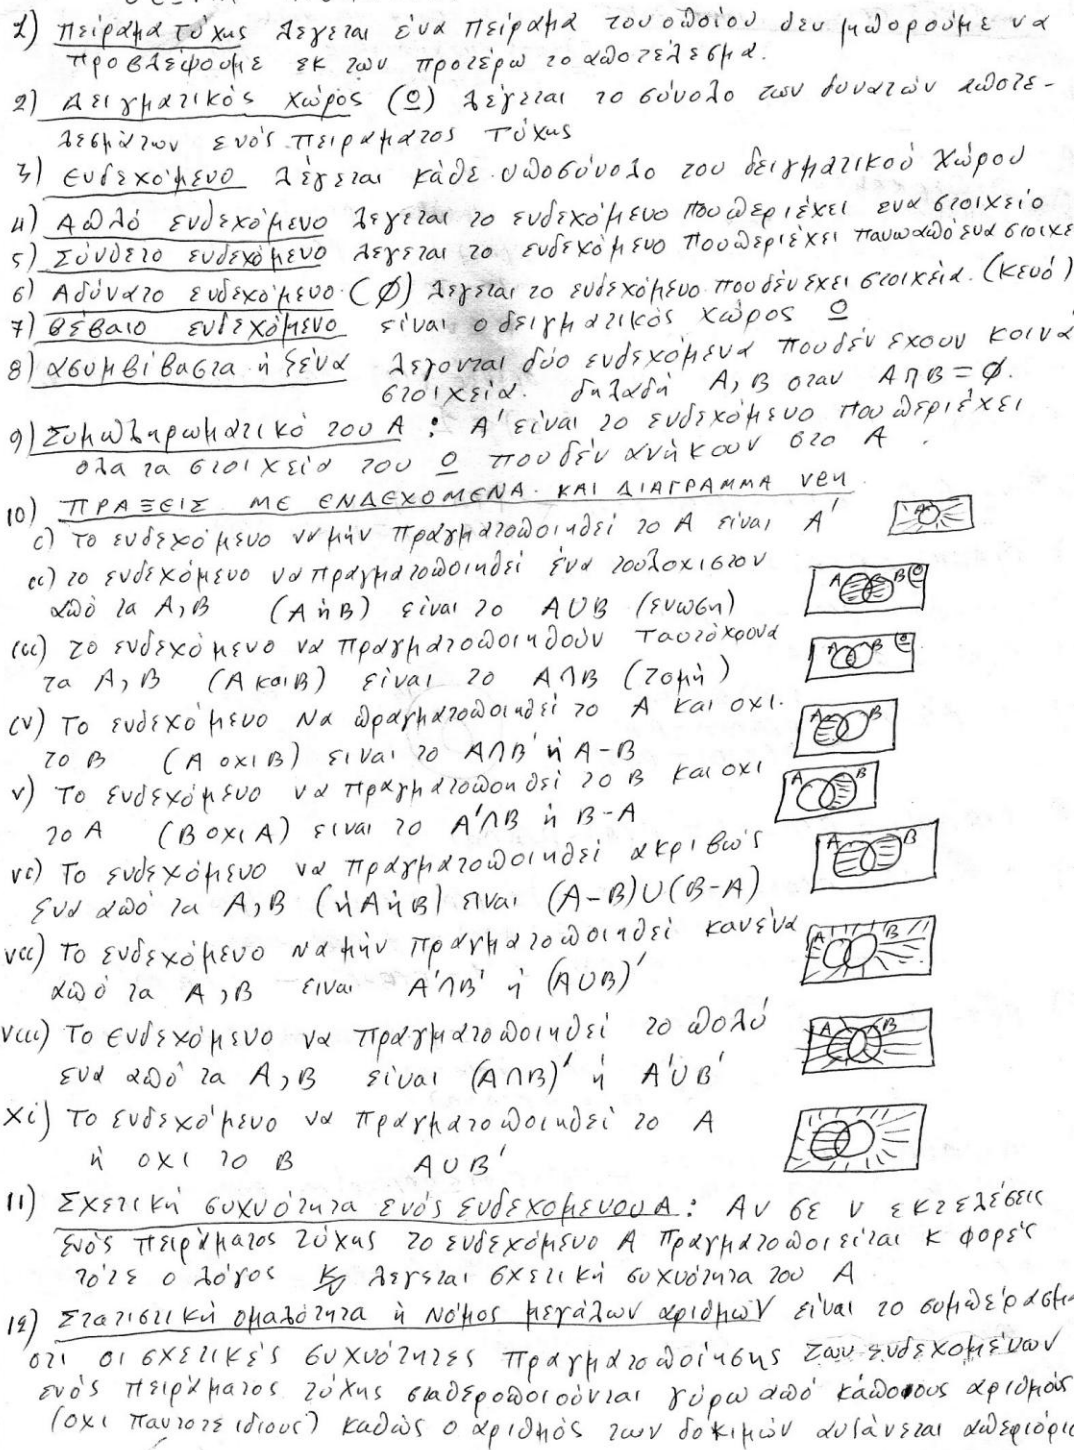 1) Πείραμα τύχης λέγεται ένα πείραμα του οποίου δεν μπορούμε να
προβλέψουμε εκ των προτέρω το αποτέλεσμα.
2) Δειγματικός χώρος (Ω) λέγεται το σύνολο των δυνατών αποτε-
λεσμάτων ενός πειράματος τύχης
3) Ενδεχόμενο λέγεται κάθε υποσύνολο του δειγματικού χώρου
4) Απλό ενδεχόμενο λεγεται το ενδεχόμενο που περιέχει ενα στοιχείο
5) Σύνθετο ενδεχόμενο λεγεται το ενδεχόμενο που περιέχει πανω από ενα στοιχε
6) Αδύνατο ενδεχόμενο (∅) λεγεται το ενδεχόμενο που δέν έχει στοιχεία. (κενό)
7) Βέβαιο ενδεχόμενο είναι ο δειγματικός χώρος Ω
8) ασυμβίβαστα ή ξένα λεγονται δύο ενδεχόμενα που δέν εχουν κοινά
στοιχεία. δηλαδή Α, Β οταν Α∩Β=∅.
9) Συμπληρωματικό του Α : Α' είναι το ενδεχόμενο που περιέχει
ολα τα στοιχεία του Ω που δέν ανήκουν στο Α .
10) ΠΡΑΞΕΙΣ ΜΕ ΕΝΔΕΧΟΜΕΝΑ ΚΑΙ ΔΙΑΓΡΑΜΜΑ ven
i) το ενδεχόμενο να μήν πραγματοποιηθεί το Α είναι Α' Α
ii) το ενδεχόμενο να πραγματοποιηθεί ένα τουλοχιστον Α Β Ω
από τα Α, Β (Α ή Β) είναι το Α∪Β (ενωση)
iii) το ενδεχόμενο να πραγματοποιηθούν ταυτόχρονα Α Β Ω
τα Α, Β (Α και Β) είναι το Α∩Β (τομή)
iv) Το ενδεχόμενο Να πραγματοποιηθεί το Α και οχι. Α Β
το Β (Α οχι Β) ειναι το Α∩Β' ή Α-Β
v) Το ενδεχόμενο να πραγματοποιηθεί το Β και οχι Α Β
το Α (Β οχι Α) ειναι το Α'∩Β ή Β-Α
vi) Το ενδεχόμενο να πραγματοποιηθεί ακριβώς Α Β
ένα από τα Α, Β (ή Α ή Β) ειναι (Α-Β)∪(Β-Α)
vii) Το ενδεχόμενο να μήν πραγματοποιηθεί κανένα Α Β
από τα Α, Β ειναι Α'∩Β' ή (Α∪Β)'
viii) Το ενδεχόμενο να πραγματοποιηθεί το πολύ Α Β
ενα από τα Α, Β είναι (Α∩Β)' ή Α'∪Β'
xi) Το ενδεχόμενο να πραγματοποιηθεί το Α
ή οχι το Β Α∪Β'
11) Σχετική συχνότητα ενός ενδεχομενου Α : Αν σε ν εκτελέσεις
ενός πειράματος τύχης το ενδεχόμενο Α πραγματοποιείται κ φορές
τότε ο λόγος κ/ν λεγεται σχετική συχνότητα του Α
12) Στατιστική ομαλότητα ή Νόμος μεγάλων αριθμών είναι το συμπέρασμα
οτι οι σχετικές συχνότητες πραγματοποίησης των ενδεχομένων
ενός πειράματος τύχης σταθεροποιούνται γύρω από κάποιους αριθμούς
(οχι παντοτε ιδιους) καθώς ο αριθμός των δοκιμών αυξάνεται απεριόρισ